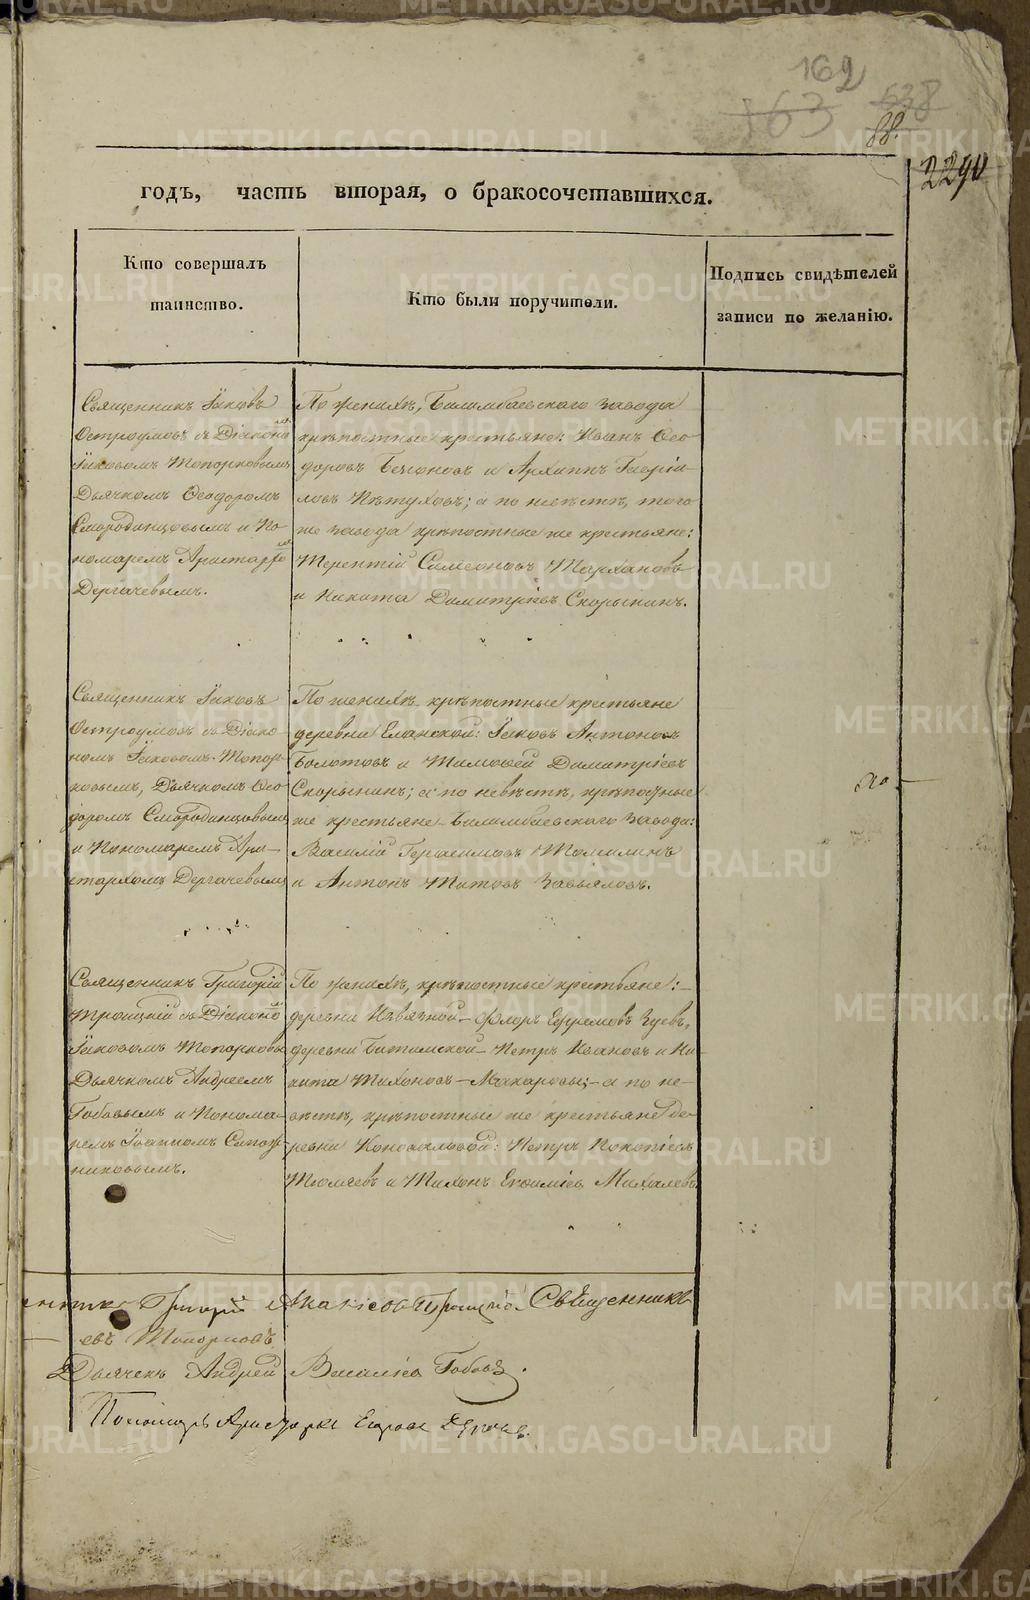 162
163 638
88.
2290
годъ, часть вторая, о бракосочетавшихся.
Кто совершалъ
таинство.
Кто были поручители.
Подпись свидѣтелей
записи по желанію.
Священникъ Іаковъ
Остроумовъ съ Діакономъ
Іаковомъ Топорковымъ
Дьячкомъ Ѳеодоромъ
Смородинцовымъ и По-
номаремъ Аристархомъ
Дергачевымъ.
По женихѣ, Билимбаевскаго завода
крѣпостные крестьяне: Иванъ Ѳео-
доровъ и Архипъ Гаврі-
ловъ Пѣтуховъ; а по невѣстѣ, того
же завода крѣпостные же крестьяне:
Терентій Симеоновъ Тархановъ
и Никита Димитріевъ Скорынинъ.
Священникъ Іаковъ
Остроумовъ съ Діако-
номъ Іаковомъ Топор-
ковымъ, Дьячкомъ Ѳео-
доромъ Смородинцовымъ
и Пономаремъ Ари-
стархомъ Дергачевымъ
По женихѣ крѣпостные крестьяне
деревни Еланской: Іаковъ Антоновъ
Болотовъ и Тимоѳей Димитріевъ
Скорынинъ; а по невѣстѣ, крѣпостные
же крестьяне Билимбаевскаго завода:
Василій Герасимовъ Томилинъ
и Антонъ Титовъ Завьяловъ.
Священникъ Григорій
Троицкій съ Діакономъ
Іаковомъ Топорковы
Дьячкомъ Андреемъ
Бабовымъ и Понома-
ремъ Іоанномъ Сапож-
никовымъ.
По женихѣ, крѣпостные крестьяне:-
деревни Извязной - Флоръ Ефремовъ Зуевъ,
деревни Битимской - Петръ Ивановъ и Ни-
кита Тихоновъ - Макаровы; - а по не-
вѣстѣ, крѣпостные же крестьяне де-
ревни Коноваловой: Петръ
и Тихонъ Михалевъ
Григорій Троицкій Священникъ
евъ Топорковъ
Дьячекъ Андрей Бабовъ.
Пономарь Аристархъ Егоровъ
METRIKI.GASO-URAL.RU